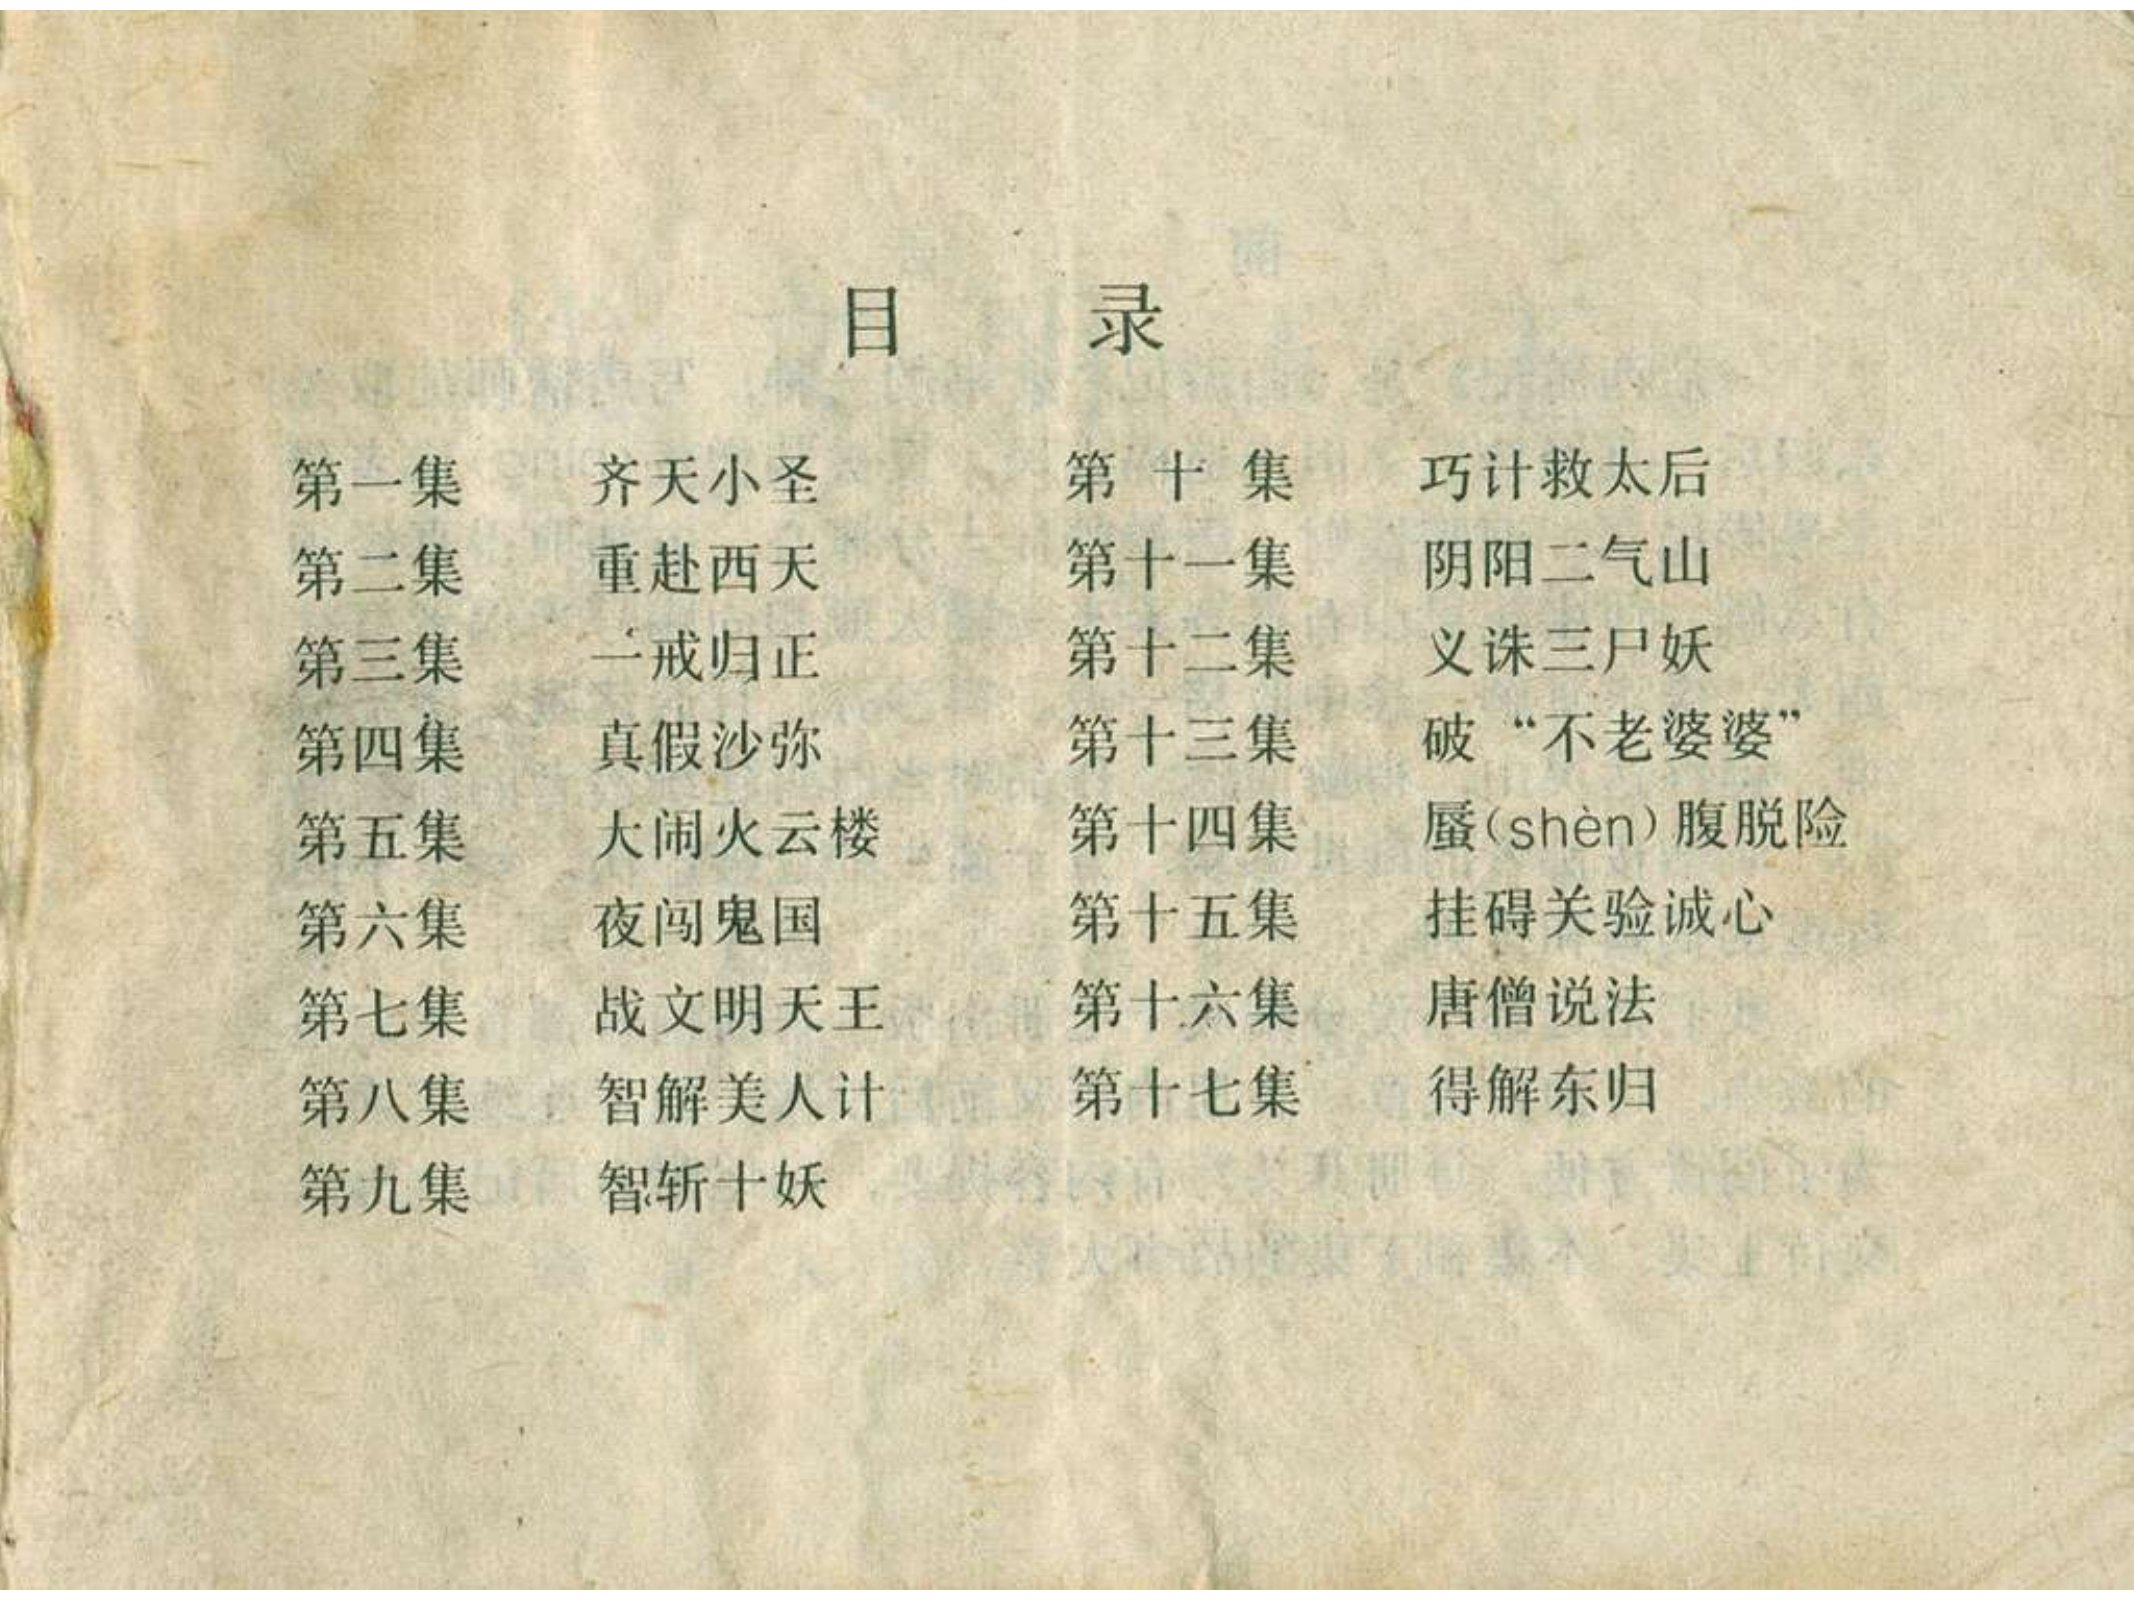 目 录
第一集 齐天小圣
第二集 重赴西天
第三集 一戒归正
第四集 真假沙弥
第五集 大闹火云楼
第六集 夜闯鬼国
第七集 战文明天王
第八集 智解美人计
第九集 智斩十妖
第十集 巧计救太后
第十一集 阴阳二气山
第十二集 义诛三尸妖
第十三集 破“不老婆婆”
第十四集 蜃(shèn)腹脱险
第十五集 挂碍关验诚心
第十六集 唐僧说法
第十七集 得解东归